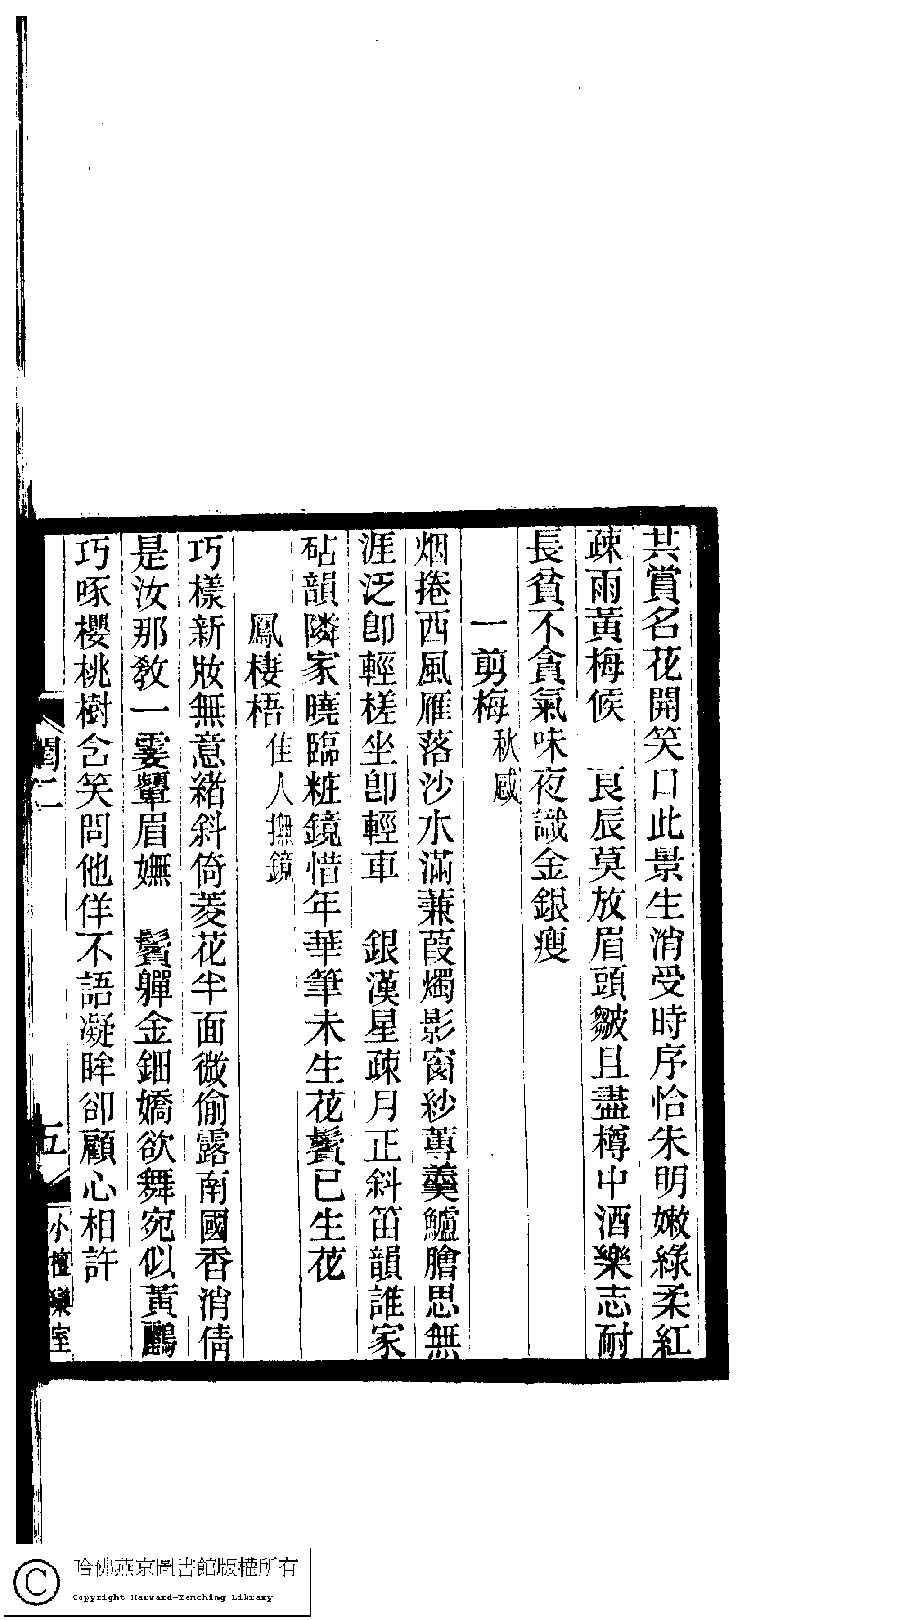 共賞名花開笑口此景生消受時序恰朱明嫩綠柔紅
疎雨黃梅候　良辰莫放眉頭皺且盡樽中酒樂志耐
長貧不貪氣味夜識金銀瘦
一剪梅 秋感
烟捲西風雁落沙水滿蒹葭燭影窗紗蓴羹鱸膾思無
涯泛卽輕槎坐卽輕車　銀漢星疎月正斜笛韻誰家
砧韻隣家曉臨粧鏡惜年華筆未生花鬢已生花
鳳棲梧 佳人撫鏡
巧樣新妝無意緒斜倚菱花半面微偷露南國香消倩
是汝那敎一霎顰眉嫵　鬢嚲金鈿嬌欲舞宛似黃鸝
巧啄櫻桃樹含笑問他佯不語凝眸卻顧心相許
閏二
五
小檀欒室
哈佛燕京圖書館版權所有
Copyright Harvard-Yenching Library